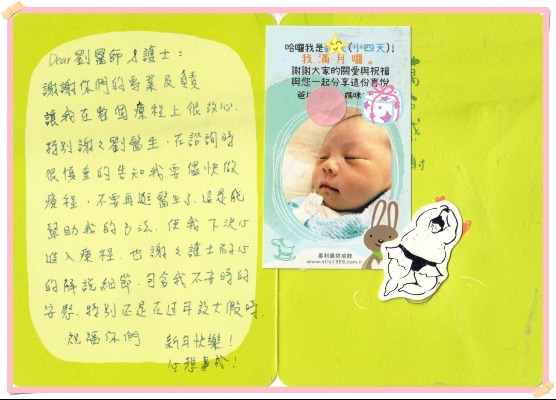 Dear 劉醫師 & 護士：
謝謝你們的專業及負責
讓我在整個療程上很放心.
特別謝々劉醫生，在諮詢時
很慎重的告知我要儘快做
療程，不要再逛醫生了，這是能
幫助我的方法，使我下決心
進入療程，也謝々護士耐心
的解說細節，包含我不安時的
安慰，特別還是在過年放大假時.
祝福你們
新年快樂！
心想事成！
哈囉我是
(小四天)!
我滿月囉。
謝謝大家的關愛與祝福
與您一起分享這份喜悅
爸
媽咪
嘉利蛋烘焙館